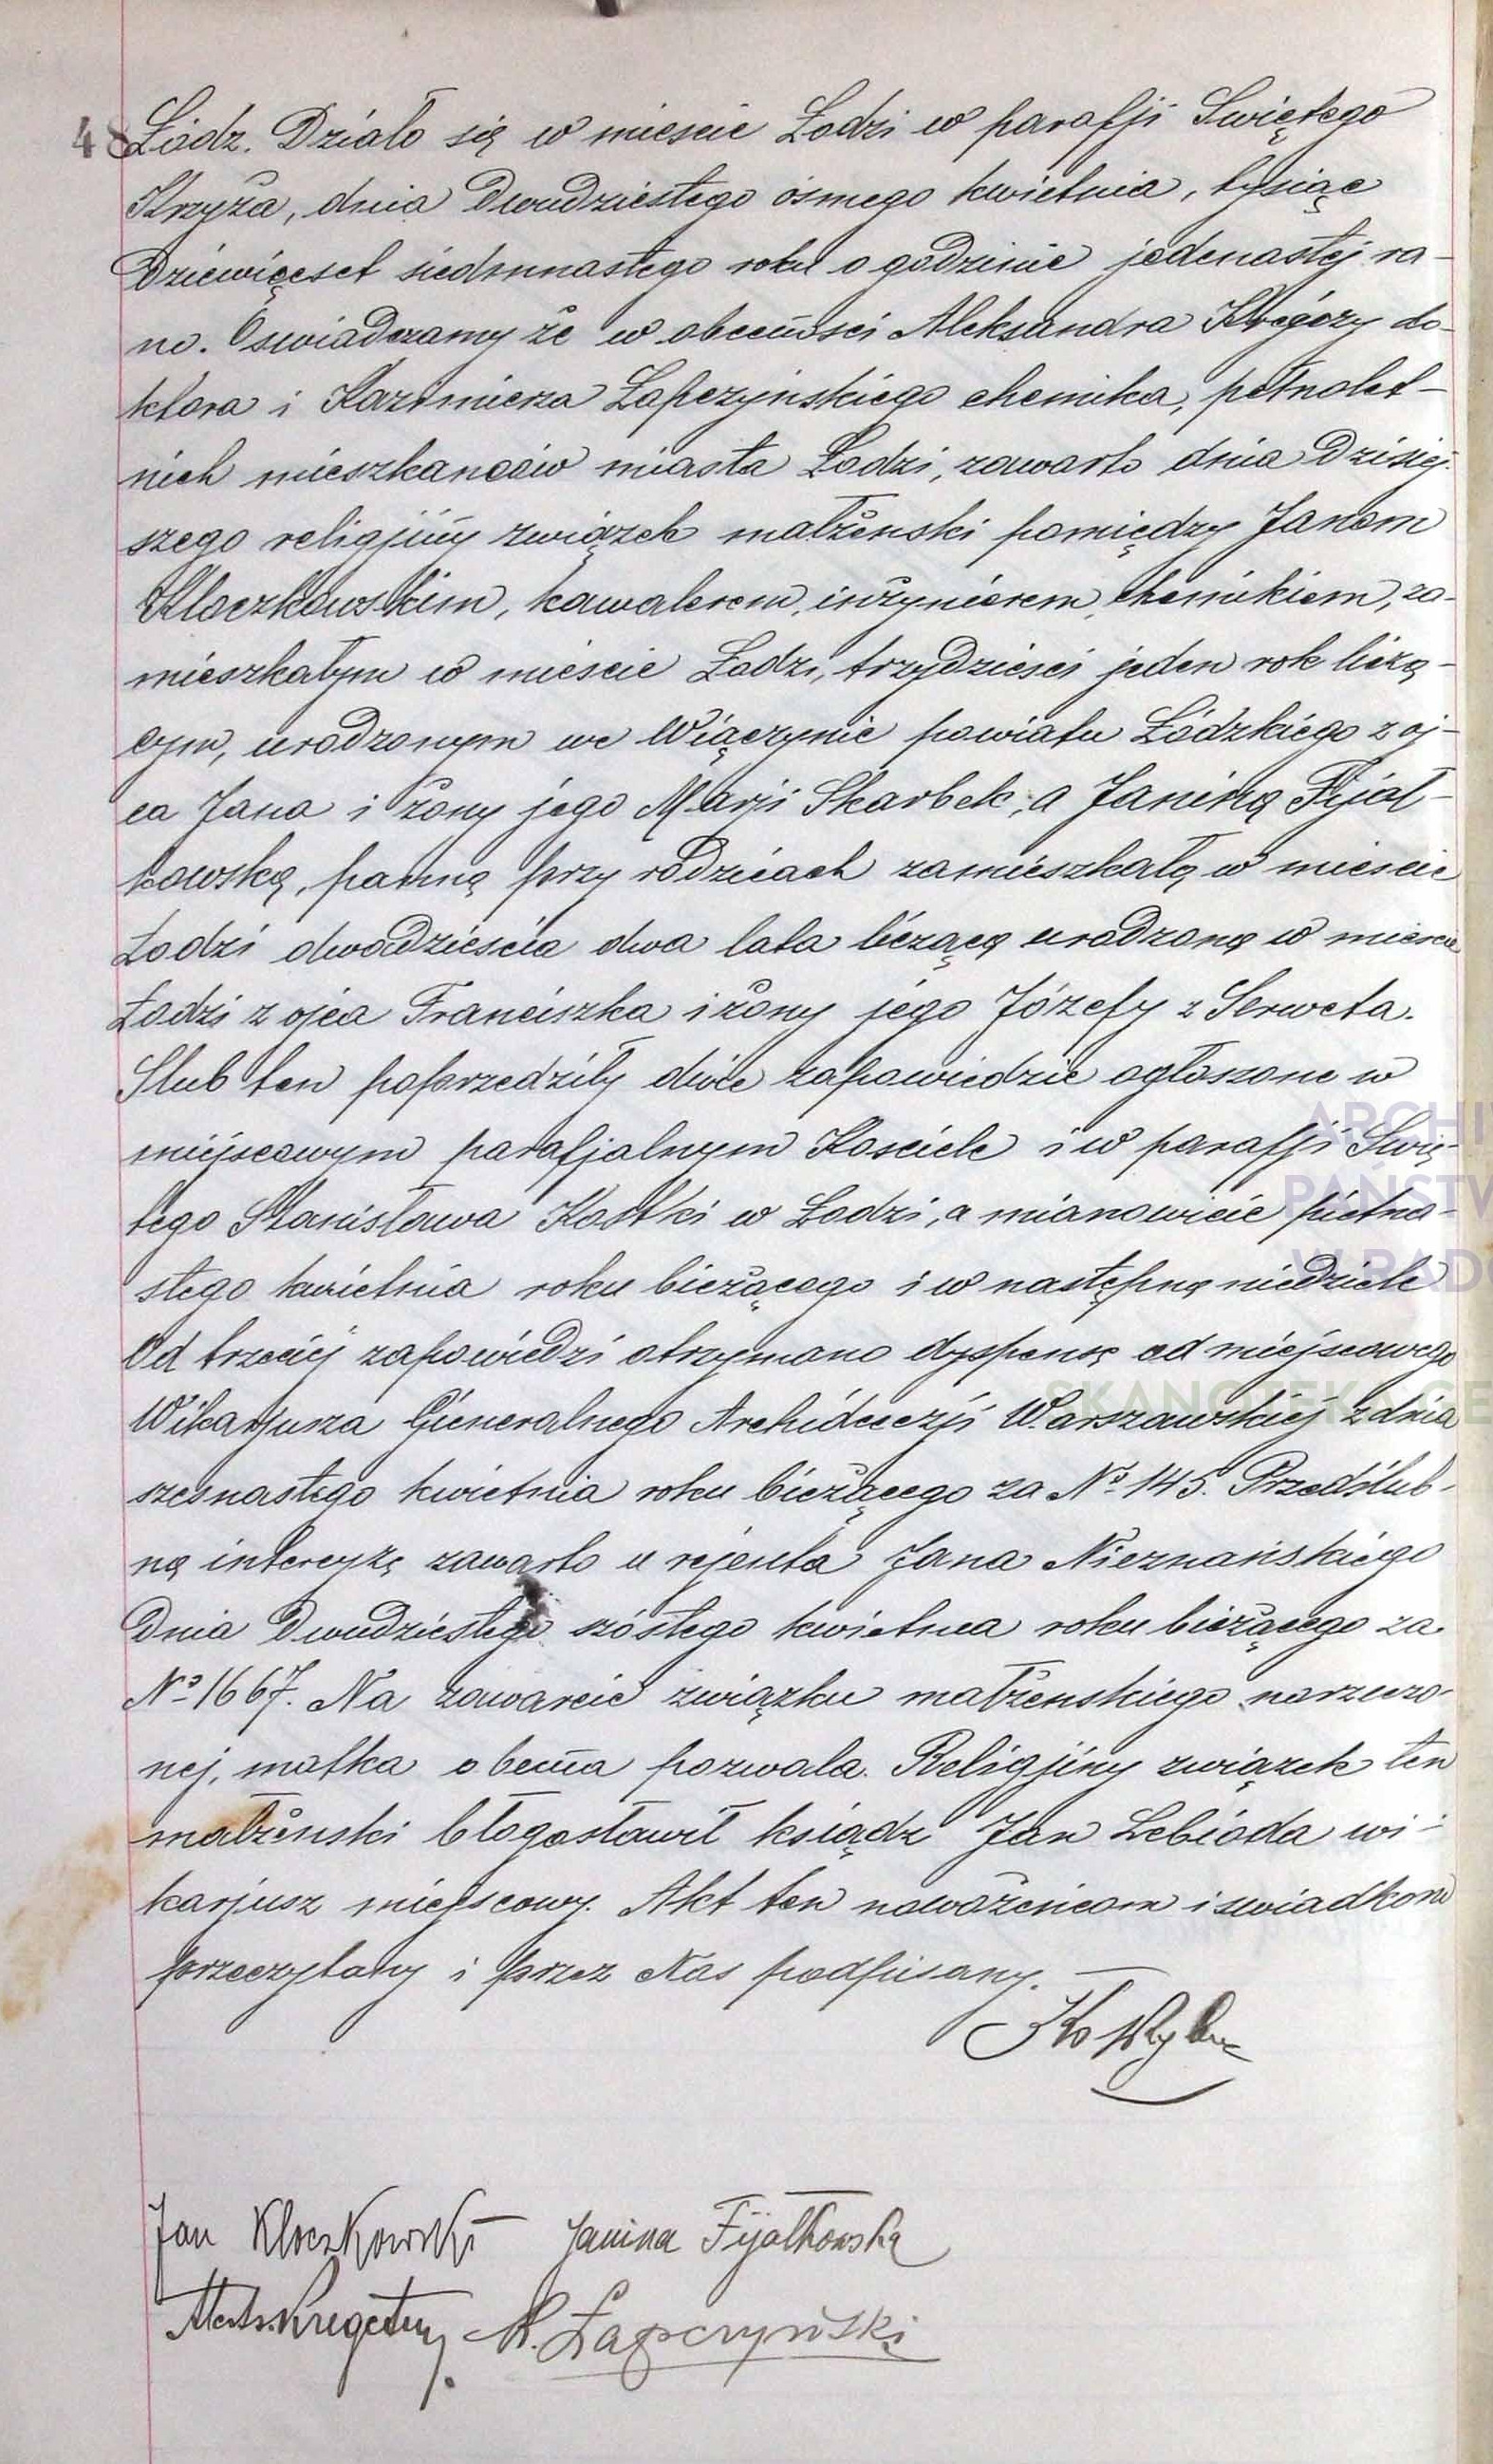 48 Łódz. Działo się w miescie Łodzi w parafji Swiętego
Krzyża, dnia Dwudziestego ósmego kwietnia, tysiąc
Dziewięcset siedmnastego roku o godzinie jedenastej ra-
no. Oswiadczamy że w obecności Aleksandra do-
ktora i Kazimierza Łapczyńskiego chemika, pełnolet-
nich mieszkanców miasta Łodzi, zawarto dnia Dzisiej-
szego religijny związek małżenski pomiędzy Janem
Kloczkowskim, kawalerem, inżynierem, chemikiem, za-
mieszkałym w miescie Łodzi, trzydziesci jeden rok liczą-
cym, urodzonym we Wiączynie powiatu Łódzkiego z oj-
ca Jana i żony jego Marji Skarbek, a Janiną Fijał-
kowską, panną przy rodzicach zamieszkałą w miescie
Łodzi dwadziescia dwa lata liczącą urodzoną w miescie
Łodzi z ojca Franciszka i żony jego Józefy z Serweta.
Slub ten poprzedziły dwie zapowiedzie ogłoszone w
miejscowym parafjalnym Kosciele i w parafji Swię-
tego Stanisława Kostki w Łodzi, a mianowicie pietna-
stego kwietnia roku bieżącego i w następną niedziele
Od trzeciej zapowiedzi otrzymano dyspensę od miejscowego
Wikarjusza Gieneralnego Archidecezji Warszawskiej z dnia
szesnastego kwietnia roku bieżącego za № 145. Przedślub-
ną intercyzę zawarto u rejenta Jana Nieznańskiego
Dnia Dwudziestego szóstego kwietnia roku bieżącego za
№ 1667. Na zawarcie związku małżenskiego narzeczo-
nej, matka obecna pozwala. Religijny związek ten
małżenski błogosławił ksiądz Jan Lebioda wi-
karjusz miejscowy. Akt ten nowożencom i swiadkom
przeczytany i przez Nas podpisany.
Jan Kloczkowski Janina Fijałkowska
K. Łapczyński
ARCHI
PAŃSTW
W RADO
SKANOTEKA GE